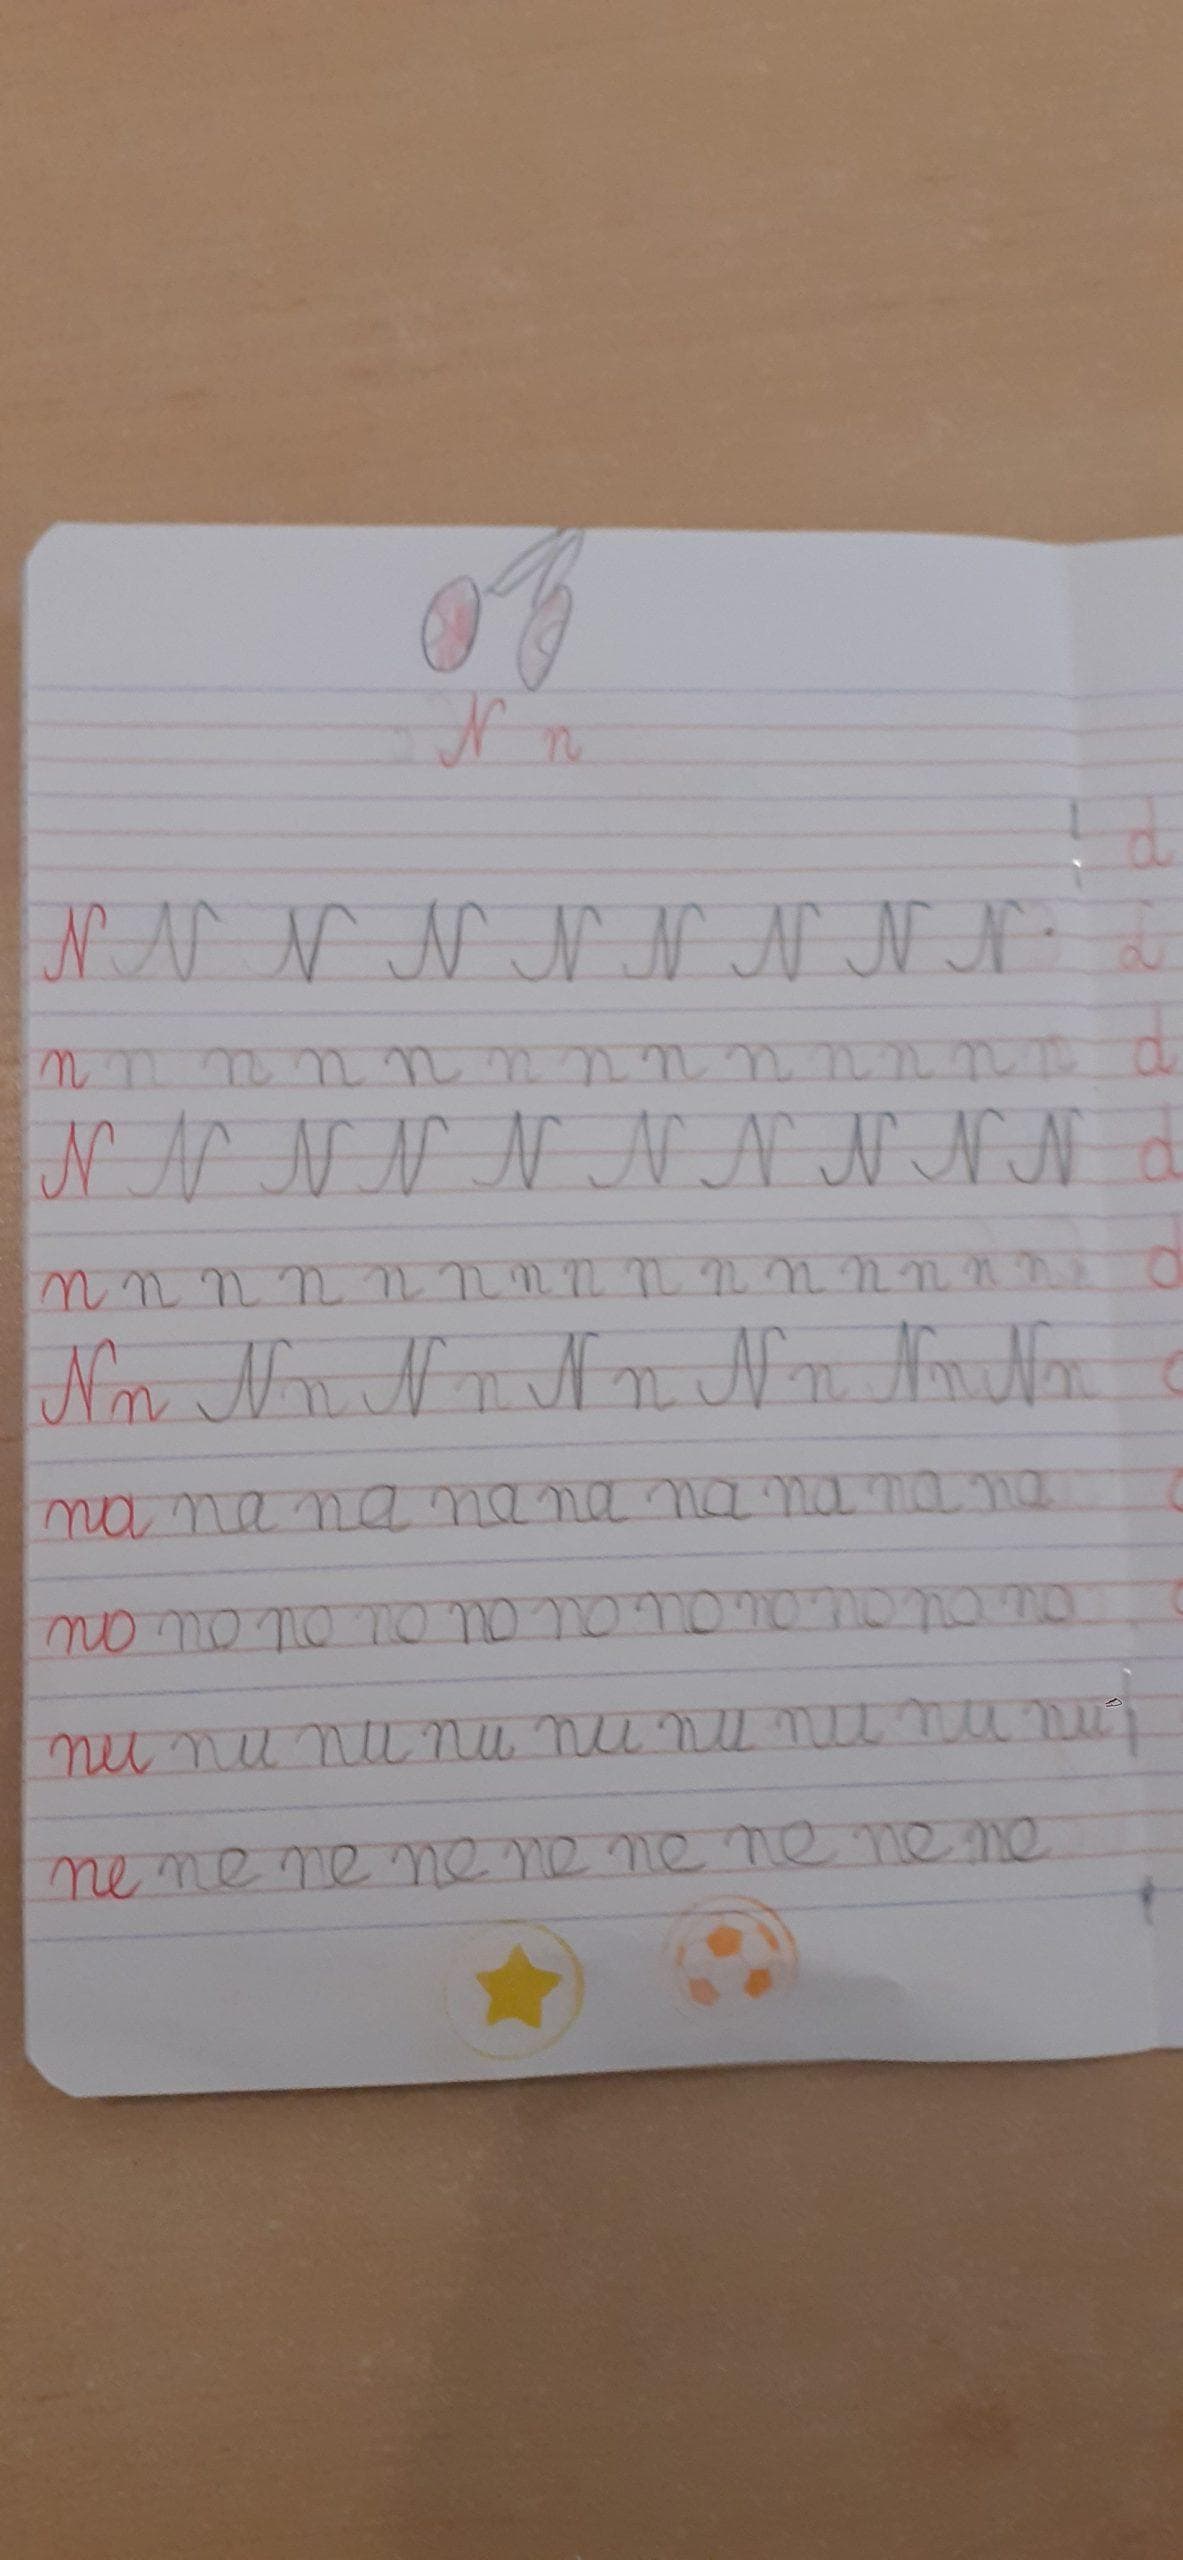 N n
N N N N N N N N N
n n n n n n n n n n n n n
N N N N N N N N N N
n n n n n n n n n n n n n n
Nn Nn Nn Nn Nn Nn Nn
na na na na na na na na na
no no no no no no no no no no no
nu nu nu nu nu nu nu nu nu
ne ne ne ne ne ne ne ne ne
d
d
d